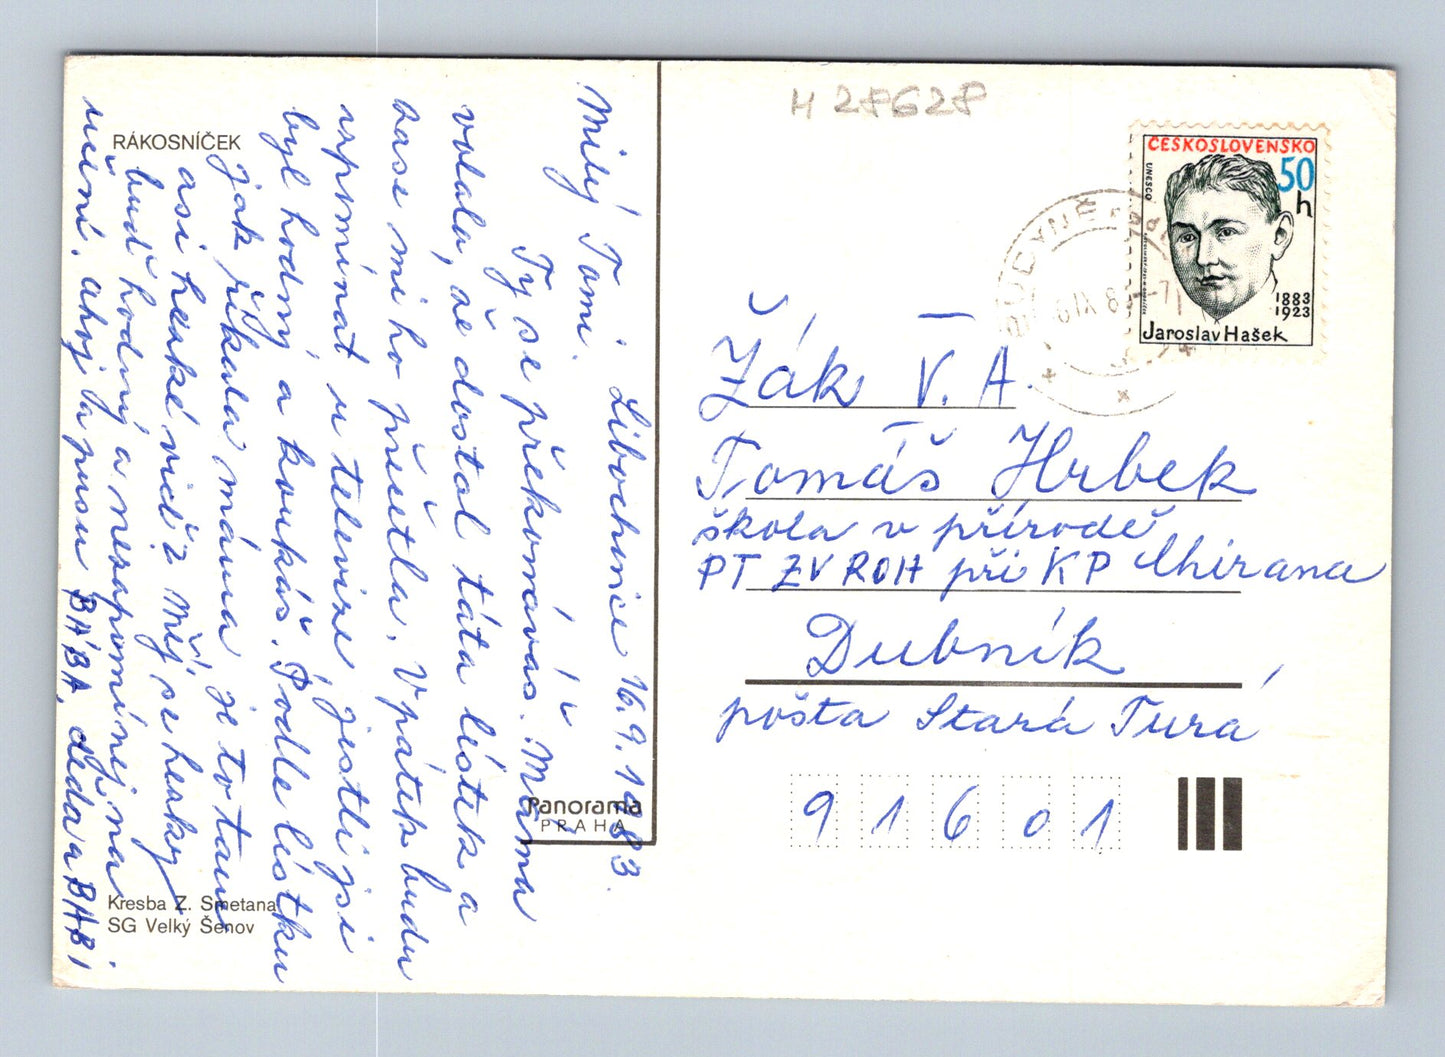 RÁKOSNÍČEK
Libochovice 16.9.1983.
Milý Tomi.
Ty se překonáváš. Máma
volala, že dostal táta lístek a
zase mi ho přečetla. V pátek budu
vzpomínat u televize jestli jsi
byl hodný a koukáš. Podle lístku
jak říkala máma je to tam
asi hezké viď? Měj se hezky
buď hodný a nezapomínej na
učení. ahoj la pusu BÁBA, děda a BABI
Kresba Z. Smetana
SG Velký Šenov
Panorama
PRAHA
H 28628
ČESKOSLOVENSKO
UNESCO
50
h
1883
1923
Jaroslav Hašek
Žák V. A.
Tomáš Hrbek
škola v přírodě
PT ZV ROH při KP Chirana
Dubník
pošta Stará Turá
91601